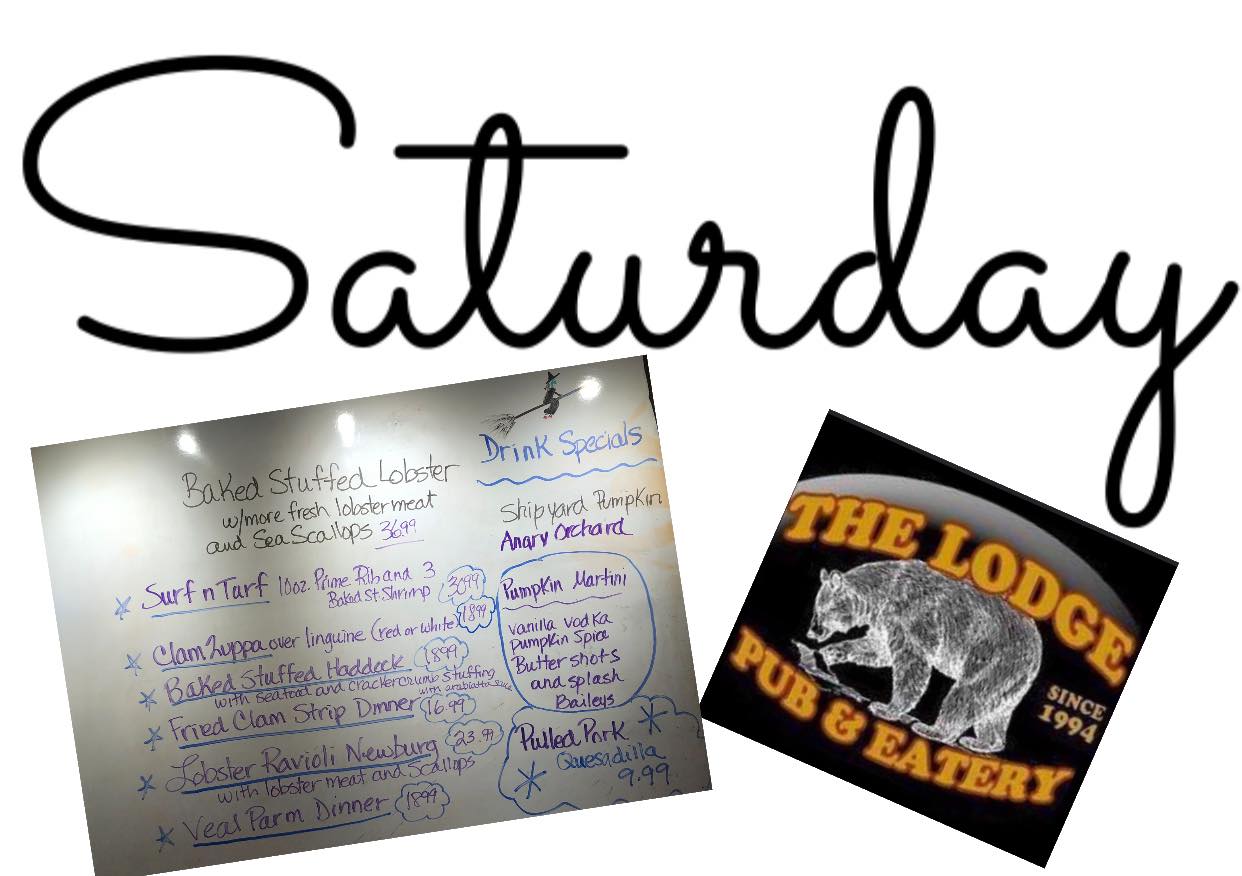 Saturday
Baked Stuffed Lobster
w/more fresh lobster meat
and Sea Scallops 36.99
Surf n Turf 10oz. Prime Rib and 3
Baked St. Shrimp 30.99
Clam Zuppa over linguine (red or white) 18.99
Baked Stuffed Haddeck 18.99
with seafood and cracker crumb stuffing
Fried Clam Strip Dinner 16.99
with arabiatta sauce
Lobster Ravioli Newburg 23.99
with lobster meat and Scallops
Veal Parm Dinner 18.99
Drink Specials
Shipyard Pumpkin
Angry Orchard
Pumpkin Martini
vanilla vodka
Pumpkin Spice
Butter shots
and splash
Baileys
Pulled Pork
Quesadilla
9.99
THE LODGE
PUB & EATERY
SINCE
1994